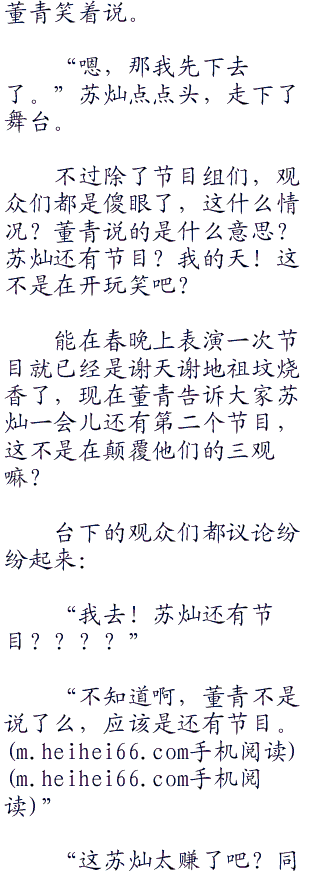 董青笑着说。
“嗯，那我先下去
了。”苏灿点点头，走下了
舞台。
不过除了节目组们，观
众们都是傻眼了，这什么情
况？董青说的是什么意思？
苏灿还有节目？我的天！这
不是在开玩笑吧？
能在春晚上表演一次节
目就已经是谢天谢地祖坟烧
香了，现在董青告诉大家苏
灿一会儿还有第二个节目，
这不是在颠覆他们的三观
嘛？
台下的观众们都议论纷
纷起来：
“我去！苏灿还有节
目？？？？”
“不知道啊，董青不是
说了么，应该是还有节目。
(m.heihei66.com手机阅读)
(m.heihei66.com手机阅
读)”
“这苏灿太赚了吧？同